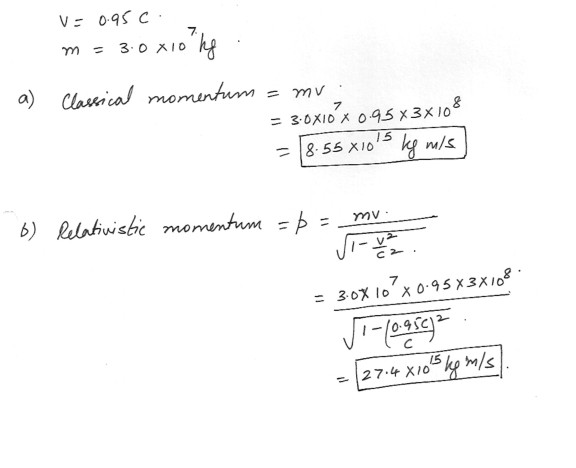 V = 0.95 C.
m = 3.0 × 10⁷ kg.
a) Classical momentum = mv.
= 3.0×10⁷ × 0.95 × 3×10⁸
= 8.55 × 10¹⁵ kg m/s
b) Relativistic momentum = p = mv. / √(1 - v²/c²).
= 3.0× 10⁷ × 0.95 × 3×10⁸. / √(1 - (0.95C/C)²).
= 27.4 ×10¹⁵ kg m/s.